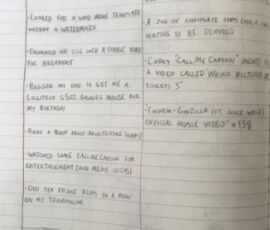 - LOOKED FOR A GOOD MEME TEMPLATE
WITHOUT A WATERMARK
- DEVOURED AN EGG WITH A DOUBLE
FOR BREAKFAST
- BEGGED MY DAD TO GET ME A
LOGITECH G502 GAMING MOUSE FOR
MY BIRTHDAY
- READ A BOOK ABOUT ARCHITECTURE
- WATCHED SOME CALLMECARSON FOR
ENTERTAINMENT (AND MEME IDEAS)
- DID TEN FRONT FLIPS IN A ROW
ON MY TRAMPOLINE
- A JUG OF CHOCOLATE CHIPS
WAITING TO BE DEVOURED
- CORNY "CALLMECARSON" MEMES
A VIDEO CALLED "WEIRD PICTURES
TOILETS 3"
- "EMINEM - GODZILLA (FT. JUICE WRLD)
OFFICIAL MUSIC VIDEO" x 138